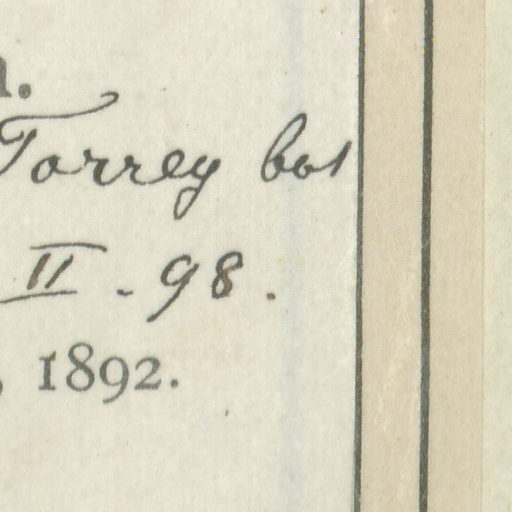 n.
Torrey bot
II - 98.
, 1892.